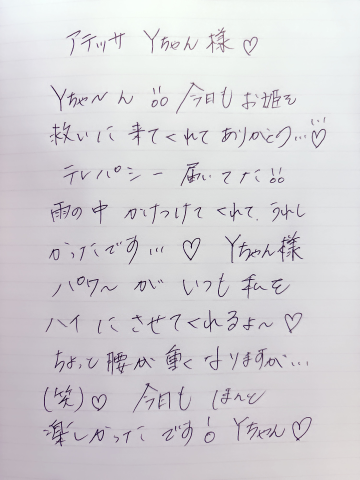 アテッサ Yちゃん様♡
Yちゃ〜ん!! 今日もお姫を
救いに来てくれてありがとう…♡
テレパシー届いてた!!
雨の中 かけつけてくれて、うれし
かったです…♡ Yちゃん様
パワ〜が いつも私を
ハイにさせてくれるよ〜♡
ちょっと腰が重くなりますが…
(笑)♡ 今日もほんと
楽しかったです! Yちゃん♡